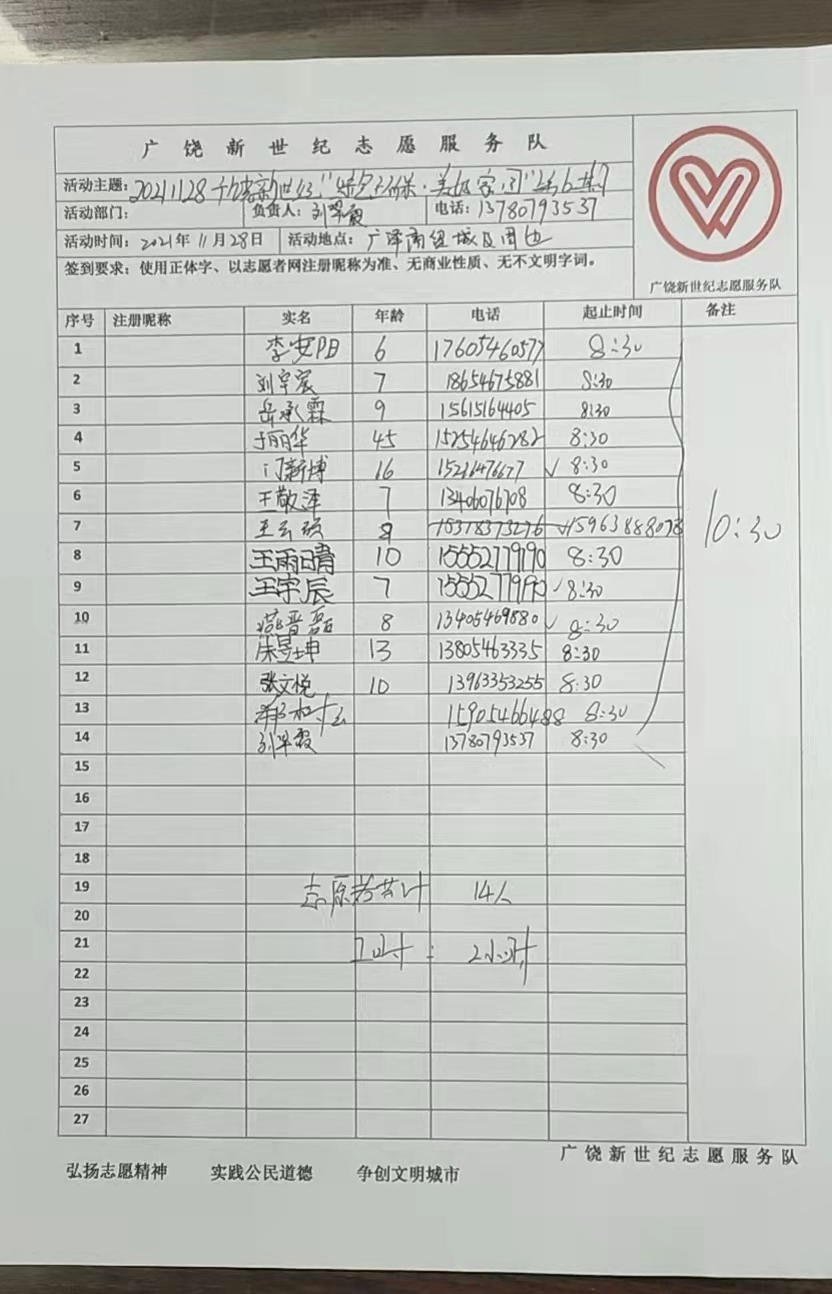 广饶新世纪志愿服务队
活动主题: 20211128广饶新世纪"绿色环保·美饶家园"
活动部门: 负责人: 刘翠霞 电话: 13780793537
活动时间: 2021年11月28日 活动地点: 广泽商贸城及周边
签到要求: 使用正体字、以志愿者网注册昵称为准、无商业性质、无不文明字词。
广饶新世纪志愿服务队
序号 注册昵称 实名 年龄 电话 起止时间 备注
1 李安阳 6 17605460577 8:30
2 刘宇宸 7 18654675881 8:30
3 岳承霖 9 15615164405 8:30
4 于丽华 45 15254646282 8:30
5 门新博 16 8:30
6 王敬泽 7 13406076708 8:30
7 王云硕 15963888078
10:30
8 王雨晴 10 15552779190 8:30
9 王宇辰 7 15552779190 8:30
10 晋磊 8 13405469880 8:30
11 朱昱坤 13 13805463335 8:30
12 张文悦 10 13963353255 8:30
13 15905466488 8:30
14 刘翠霞 13780793537 8:30
15
16
17
18
19 志愿者共计 14人
20
21 工时: 2小时
22
23
24
25
26
27
广饶新世纪志愿服务队
弘扬志愿精神 实践公民道德 争创文明城市